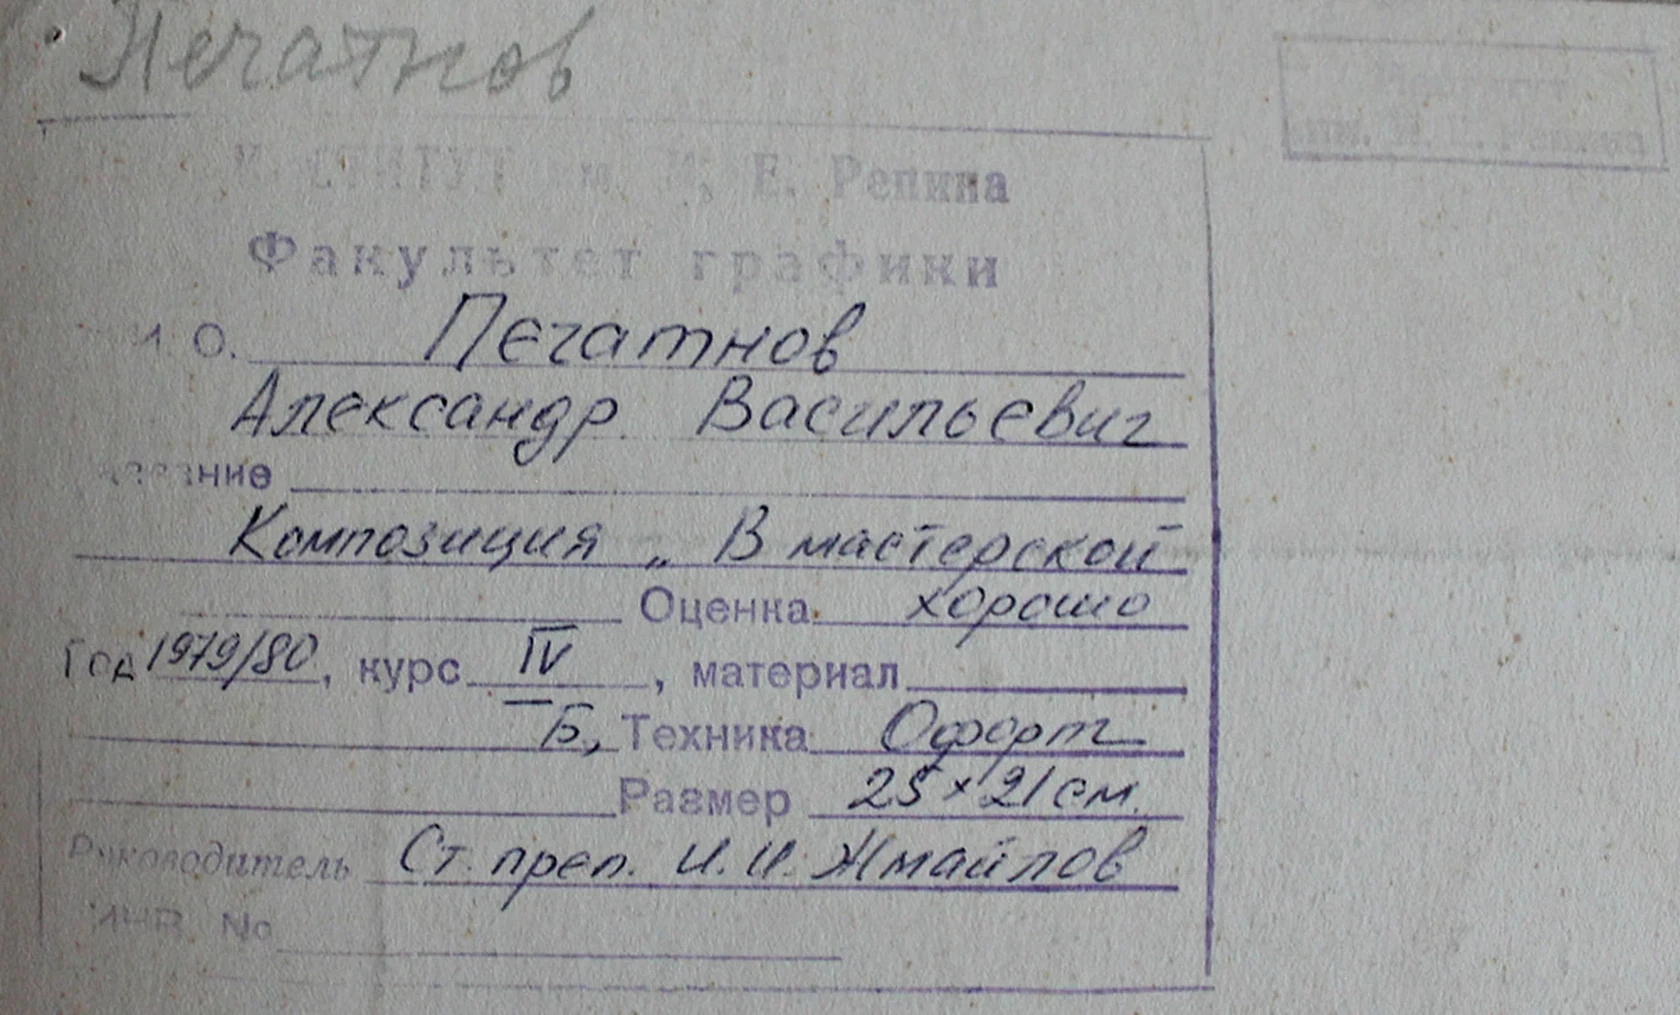 Печатнов
Институт
им. И. Е. Репина
ИНСТИТУТ им. И. Е. Репина
Факультет графики
И. О. Печатнов
Александр Васильевич
Название
Композиция „ В мастерской
Оценка хорошо
Год 1979/80, курс IV, материал
Б, Техника Офорт
Размер 25 × 21 см.
Руководитель Ст. преп. И. И. Жмайлов
ИНВ. No